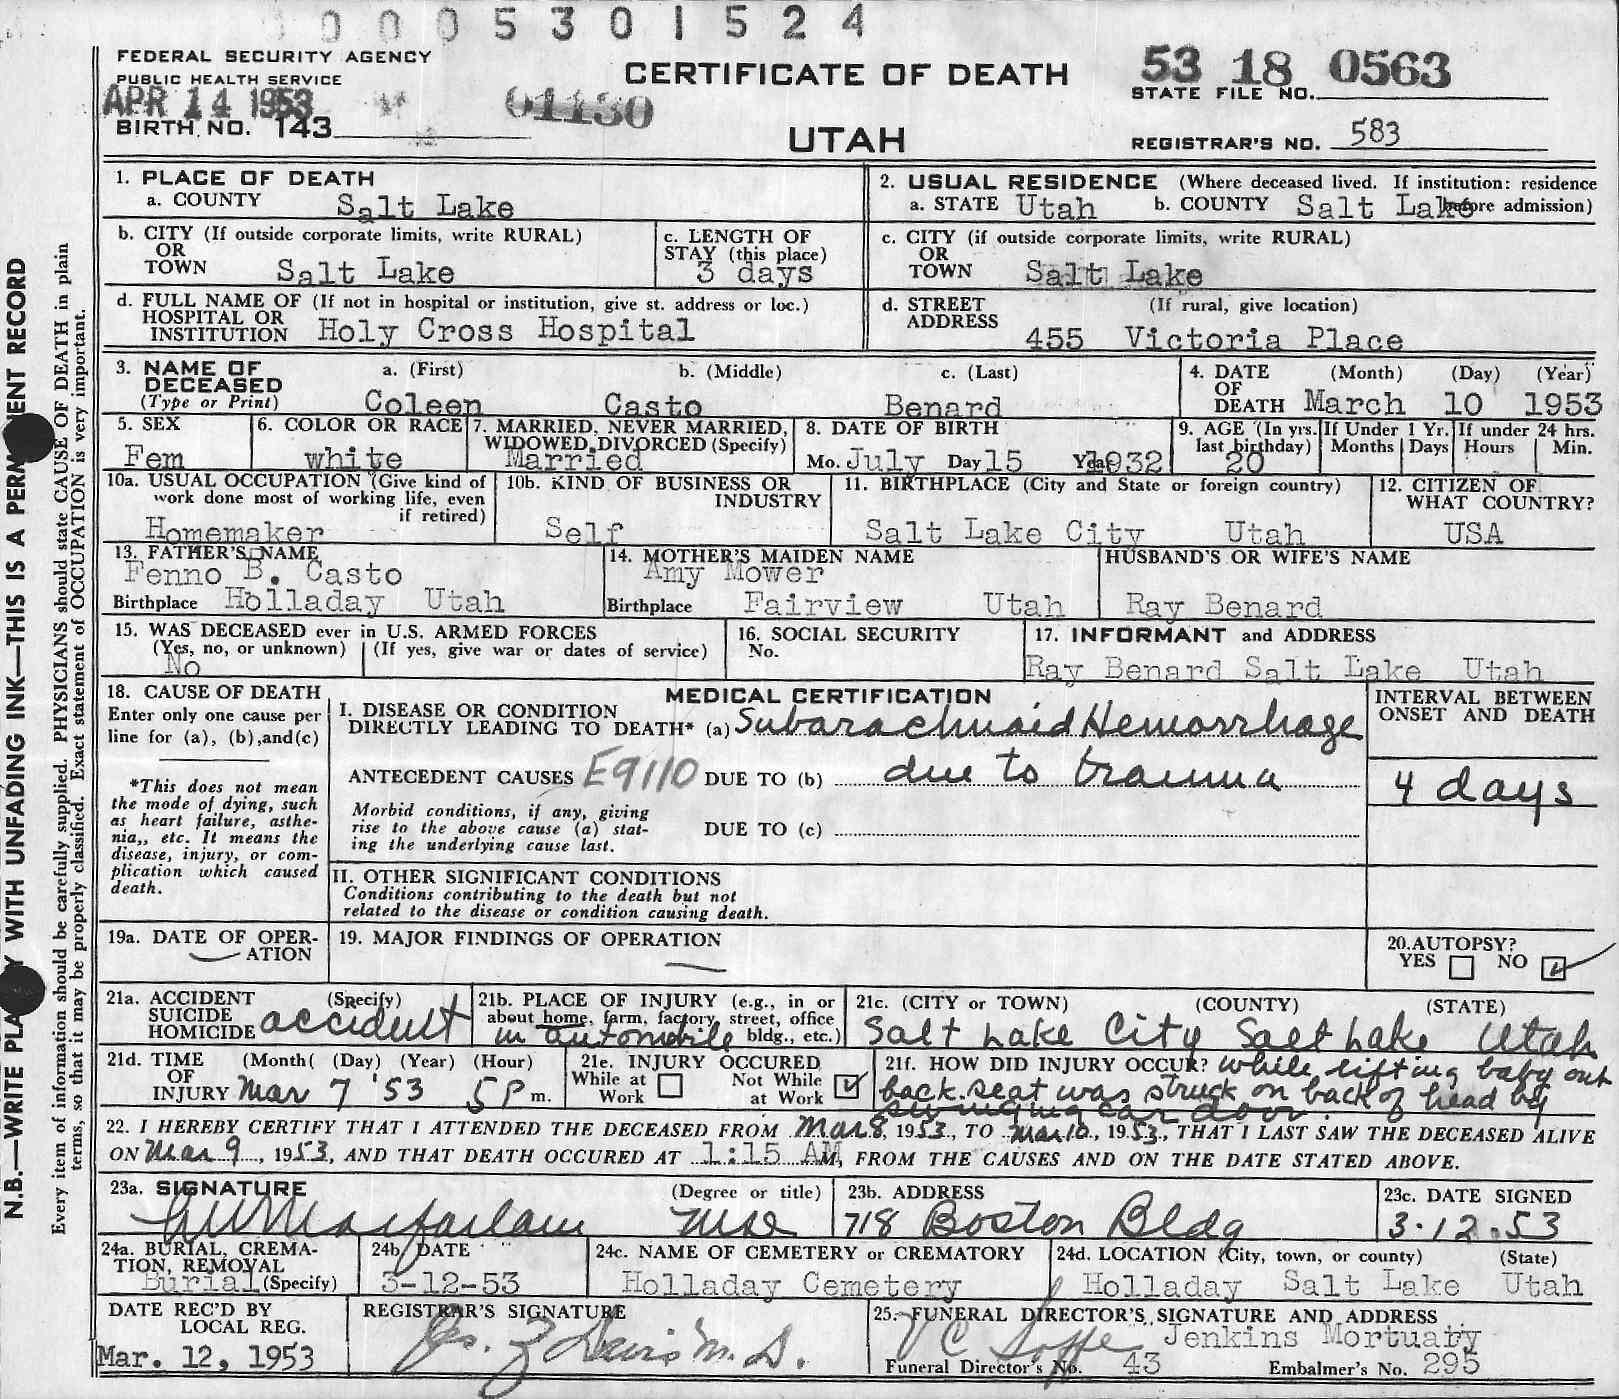 0 0 0 5 3 0 1 5 2 4
FEDERAL SECURITY AGENCY
PUBLIC HEALTH SERVICE
APR 14 1953
01130
BIRTH NO. 143
CERTIFICATE OF DEATH
UTAH
53 18 0563
STATE FILE NO.
REGISTRAR'S NO. 583
1. PLACE OF DEATH
a. COUNTY Salt Lake
2. USUAL RESIDENCE (Where deceased lived. If institution: residence before admission)
a. STATE Utah b. COUNTY Salt Lake
b. CITY (If outside corporate limits, write RURAL)
OR
TOWN Salt Lake
c. LENGTH OF
STAY (this place)
3 days
c. CITY (if outside corporate limits, write RURAL)
OR
TOWN Salt Lake
d. FULL NAME OF (If not in hospital or institution, give st. address or loc.)
HOSPITAL OR
INSTITUTION Holy Cross Hospital
d. STREET (If rural, give location)
ADDRESS 455 Victoria Place
3. NAME OF a. (First) b. (Middle) c. (Last)
DECEASED
(Type or Print) Coleen Casto Benard
4. DATE (Month) (Day) (Year)
OF
DEATH March 10 1953
5. SEX
Fem
6. COLOR OR RACE
white
7. MARRIED, NEVER MARRIED,
WIDOWED, DIVORCED (Specify)
Married
8. DATE OF BIRTH
Mo. July Day 15 Year 1932
9. AGE (In yrs. last birthday)
20
If Under 1 Yr.
Months Days
If under 24 hrs.
Hours Min.
10a. USUAL OCCUPATION (Give kind of
work done most of working life, even
if retired)
Homemaker
10b. KIND OF BUSINESS OR
INDUSTRY
Self
11. BIRTHPLACE (City and State or foreign country)
Salt Lake City Utah
12. CITIZEN OF
WHAT COUNTRY?
USA
13. FATHER'S NAME
Fenno B. Casto
Birthplace Holladay Utah
14. MOTHER'S MAIDEN NAME
Amy Mower
Birthplace Fairview Utah
HUSBAND'S OR WIFE'S NAME
Ray Benard
15. WAS DECEASED ever in U.S. ARMED FORCES
(Yes, no, or unknown) (If yes, give war or dates of service)
No
16. SOCIAL SECURITY
No.
17. INFORMANT and ADDRESS
Ray Benard Salt Lake Utah
18. CAUSE OF DEATH
Enter only one cause per
line for (a), (b), and (c)
*This does not mean
the mode of dying, such
as heart failure, asthe-
nia,, etc. It means the
disease, injury, or com-
plication which caused
death.
MEDICAL CERTIFICATION
I. DISEASE OR CONDITION
DIRECTLY LEADING TO DEATH* (a) Subarachnoid Hemorrhage
ANTECEDENT CAUSES E9110 DUE TO (b) due to trauma
Morbid conditions, if any, giving
rise to the above cause (a) stat-
ing the underlying cause last.
DUE TO (c)
INTERVAL BETWEEN
ONSET AND DEATH
4 days
II. OTHER SIGNIFICANT CONDITIONS
Conditions contributing to the death but not
related to the disease or condition causing death.
19a. DATE OF OPER-
ATION
19. MAJOR FINDINGS OF OPERATION
20. AUTOPSY?
YES NO
21a. ACCIDENT (Specify)
SUICIDE
HOMICIDE accident
21b. PLACE OF INJURY (e.g., in or
about home, farm, factory, street, office
bldg., etc.)
in automobile
21c. (CITY or TOWN) (COUNTY) (STATE)
Salt Lake City Salt Lake Utah
21d. TIME (Month( (Day) (Year) (Hour)
OF
INJURY Mar 7 '53 5 P m.
21e. INJURY OCCURED
While at Work Not While at Work
21f. HOW DID INJURY OCCUR? while lifting baby out
back seat was struck on back of head by
swinging car door.
22. I HEREBY CERTIFY THAT I ATTENDED THE DECEASED FROM Mar 8, 1953, TO Mar 10, 1953, THAT I LAST SAW THE DECEASED ALIVE
ON Mar 9, 1953, AND THAT DEATH OCCURED AT 1:15 AM, FROM THE CAUSES AND ON THE DATE STATED ABOVE.
23a. SIGNATURE (Degree or title)
23b. ADDRESS
718 Boston Bldg
23c. DATE SIGNED
3-12-53
24a. BURIAL, CREMA-
TION, REMOVAL
Burial (Specify)
24b. DATE
3-12-53
24c. NAME OF CEMETERY or CREMATORY
Holladay Cemetery
24d. LOCATION (City, town, or county) (State)
Holladay Salt Lake Utah
DATE REC'D BY
LOCAL REG.
Mar. 12, 1953
REGISTRAR'S SIGNATURE
25. FUNERAL DIRECTOR'S SIGNATURE AND ADDRESS
Jenkins Mortuary
Funeral Director's No. 43 Embalmer's No. 295
Every item of information should be carefully supplied. PHYSICIANS should state CAUSE OF DEATH in plain
terms, so that it may be properly classified. Exact statement of OCCUPATION is very important.